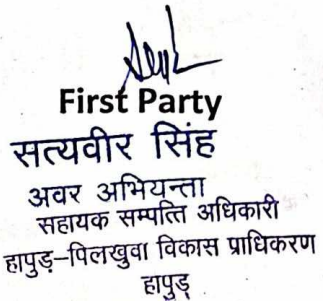 First Party
सत्यवीर सिंह
अवर अभियन्ता
सहायक सम्पत्ति अधिकारी
हापुड़–पिलखुवा विकास प्राधिकरण
हापुड़